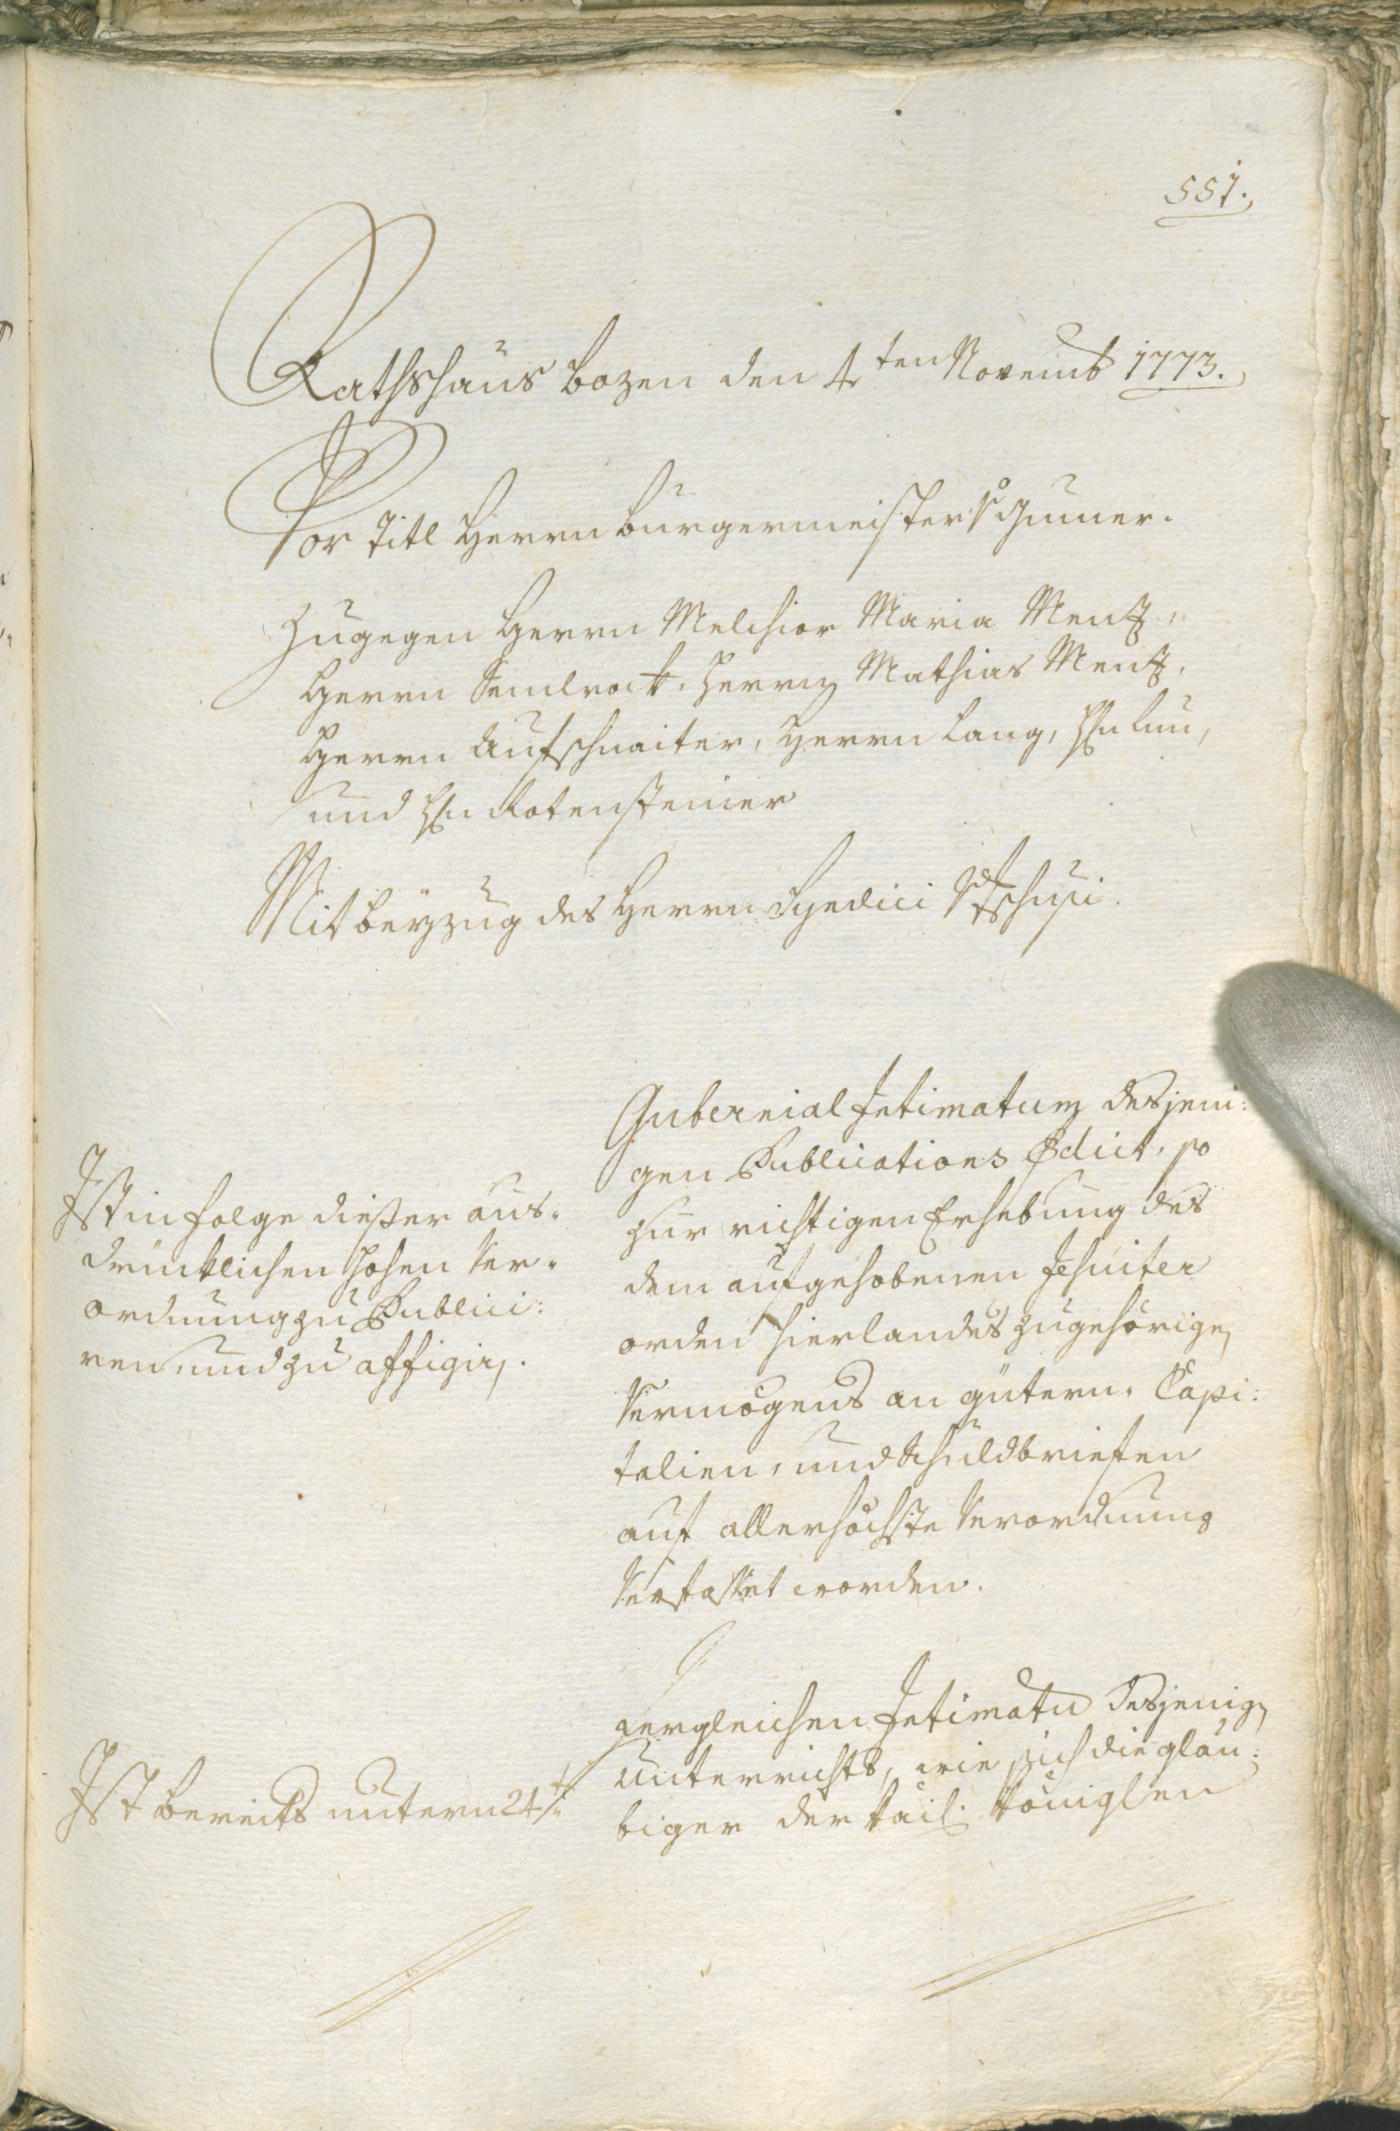 551.
Rathshaus Bozen den 4ten Novemb 1773.
Vor Titl Herrn Burgermeister v Gumer.
Zugegen Herrn Melchior Maria Menz,
Herrn Semlrock, Herrn Mathias Menz,
Herrn Aufschnaiter, Herrn Lang, Hn Lun,
und Hn Rotensteiner
Mit beyzug des Herrn Syndici v Tschusi.
Gubernial Intimatum desjeni:
gen Publications Edict, so
zur richtigen Erhebung des
dem aufgehobenen Jesuiter
orden hierlandes zugehörigen
Vermögens an gütern, Capi:
talien, und Schuldbriefen
auf allerhöchste Verordnung
Verfasset worden.
Ist in folge dießer aus-
drücklichen hohen Ver-
ordnung zu Publici:
ren, und zu affigirn.
dergleichen Intimatum desjenigen
Unterrichts, wie sich die glau:
biger der kail. königlen
Ist bereits untern 24t: